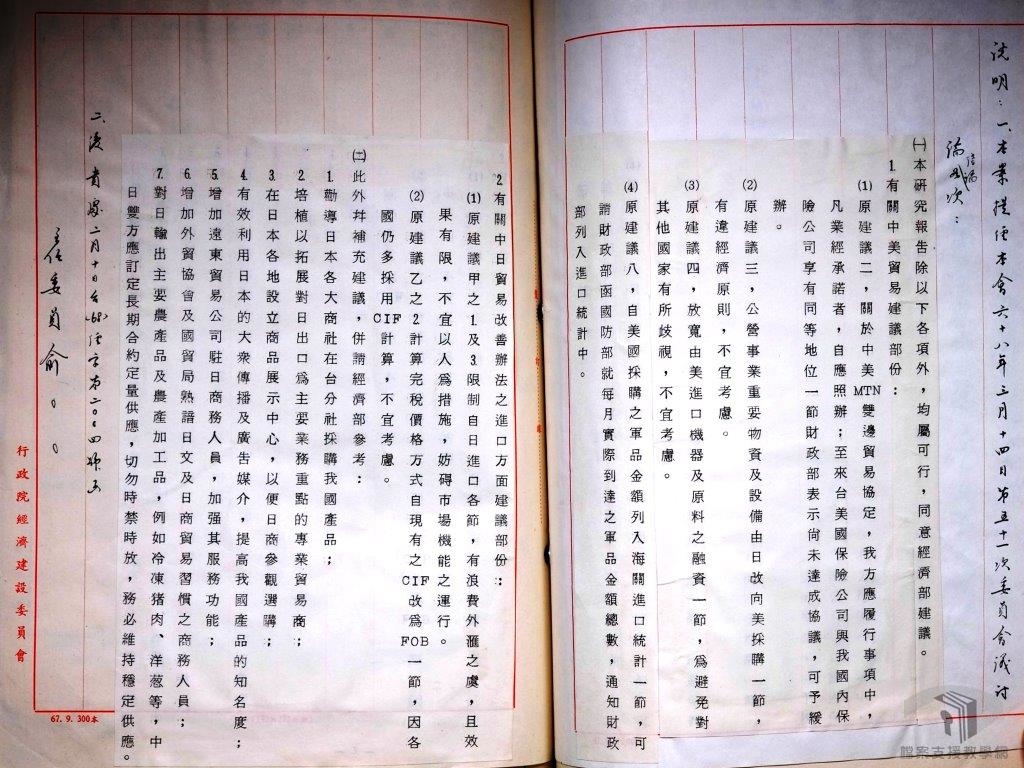 說明：一、本案提經本會六十八年三月十四日第五十一次委員會議討
論結論
次：
㈠本研究報告除以下各項外，均屬可行，同意經濟部建議。
1.有關中美貿易建議部份：
⑴原建議二，關於中美MTN雙邊貿易協定，我方應履行事項中，
凡業經承諾者，自應照辦；至來台美國保險公司與我國內保
險公司享有同等地位一節財政部表示尚未達成協議，可予緩
辦。
⑵原建議三，公營事業重要物資及設備由日改向美採購一節，
有違經濟原則，不宜考慮。
⑶原建議四，放寬由美進口機器及原料之融資一節，為避免對
其他國家有所歧視，不宜考慮。
⑷原建議八，自美國採購之軍品金額列入海關進口統計一節，可
請財政部函國防部就每月實際到達之軍品金額總數，通知財政
部列入進口統計中。
2.有關中日貿易改善辦法之進口方面建議部份：
⑴原建議甲之1.及3.限制自日進口各節，有浪費外滙之虞，且效
果有限，不宜以人為措施，妨碍市場機能之運行。
⑵原建議乙之2.計算完稅價格方式自現有之CIF改為FOB一節，因各
國仍多採用CIF計算，不宜考慮。
㈡此外幷補充建議，併請經濟部參考：
1.勸導日本各大商社在台分社採購我國產品；
2.培植以拓展對日出口為主要業務重點的專業貿易商；
3.在日本各地設立商品展示中心，以便日商參觀選購；
4.有效利用日本的大衆傳播及廣告媒介，提高我國產品的知名度；
5.增加遠東貿易公司駐日商務人員，加强其服務功能；
6.增加外貿協會及國貿局熟諳日文及日商貿易習慣之商務人員；
7.對日輸出主要農產品及農產加工品，例如冷凍猪肉、洋葱等，中
日雙方應訂定長期合約定量供應，切勿時禁時放，務必維持穩定供應。
二、復貴處二月十日台(68)經字第二〇〇四號函
主任委員俞〇〇
行政院經濟建設委員會
67.9.300本
檔案支援教學網